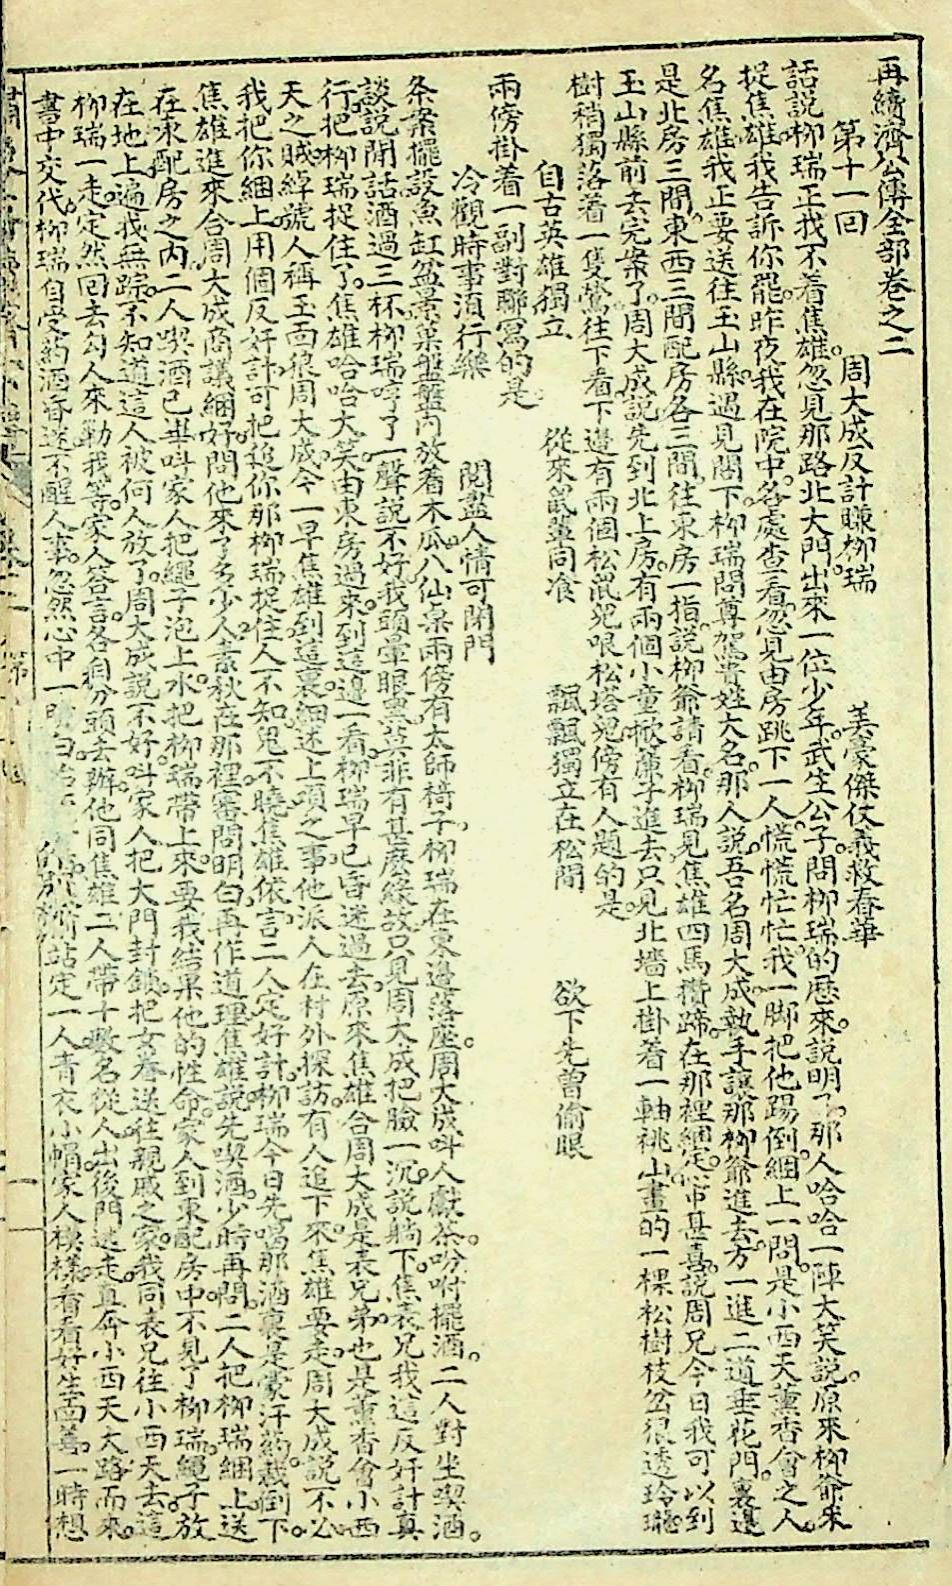 再續濟公傳全部卷之二
第十一回　周大成反計賺柳瑞　美豪傑仗義救春華
話說柳瑞正我不着焦雄。忽見那路北大門。出來一位少年。武生公子。問柳瑞的歷來。說明了。那人哈哈一陣大笑說。原來柳爺來
捉焦雄。我告訴你罷。昨夜我在院中。各處查看。忽見由房跳下一人。慌慌忙忙我一脚把他踢倒。綑上一問。是小西天薰香會之人。
名焦雄。我正要送往玉山縣。遇見閣下。柳瑞問尊駕貴姓大名。那人說吾名周大成。執手讓那柳爺進去。方一進二道垂花門。裏邊
是北房三間。東西三間配房各三間。往東房一指。說柳爺請看。柳瑞見焦雄四馬攢蹄。在那裡綑定。心中甚喜。說周兄今日我可以到
玉山縣前去完案了。周大成說先到北上房。有兩個小童掀簾子進去。只見北墻上掛着一軸挑山畫的一棵松樹枝岔狠透玲瓏。
樹稍獨落着一隻鶯。往下看下邊有兩個松鼠兒喂松塔兒。傍有人題的是。
自古英雄獨立　從來鼠輩同飡　飄飄獨立在松間　欲下先曾偷眼
兩傍掛着一副對聯寫的是
冷觀時事湏行樂　閱盡人情可閉門
条案擺設魚缸盆景菓盤盤內放着木瓜。八仙桌兩傍有太師椅子。柳瑞在東邊落座。周大成叫人獻茶。吩咐擺酒。二人對坐喫酒。
談說閒話酒過三杯。柳瑞哼了一聲說不好。我頭暈眼黑。莫非有甚麼緣故。只見周大成把臉一沉。說躺下。焦表兄我這反奸計真
行。把柳瑞捉住了。焦雄哈哈大笑。由東房過來。到這邊一看。柳瑞早已昏迷過去。原來焦雄合周大成是表兄弟。也是薰香會小西
天之賊。綽號人稱玉面狼周大成。今一早焦雄到這裏。細述上項之事。他派人在村外探訪。有人追下來。焦雄要走。周大成說不必
我把你綑上。用個反奸計。可把追你那柳瑞捉住。人不知兒不曉。焦雄依言。二人定好計。柳瑞今日先喝那酒裏。是蒙汗葯。栽倒下。
焦雄進來。合周大成商議綑好。問他來了多少人。素秋在那裡。審問明白。再作道理。焦雄說。先喫酒。少時再問。二人把柳瑞綑上。送
在東配房之內。二人喫酒已畢。叫家人把繩子泡上水。把柳瑞帶上來。要我結果他的性命。家人到東配房中。不見了柳瑞。繩子放
在地上。遍我無踪。不知道這人被何人放了。周大成說不好。叫家人把大門封鎖。把女眷送往親戚之家。我同表兄往小西天去。這
柳瑞一走。定然回去勾人來勦我等。家人答言。各自分頭去辦。他同焦雄二人帶十數名從人。出後門逃走。真奔小西天大路而來。
書中交代。柳瑞自受葯酒昏迷不醒人事。忽然心中一明白。
站定一人青衣小帽。家人模樣。看看好生面善。一時想